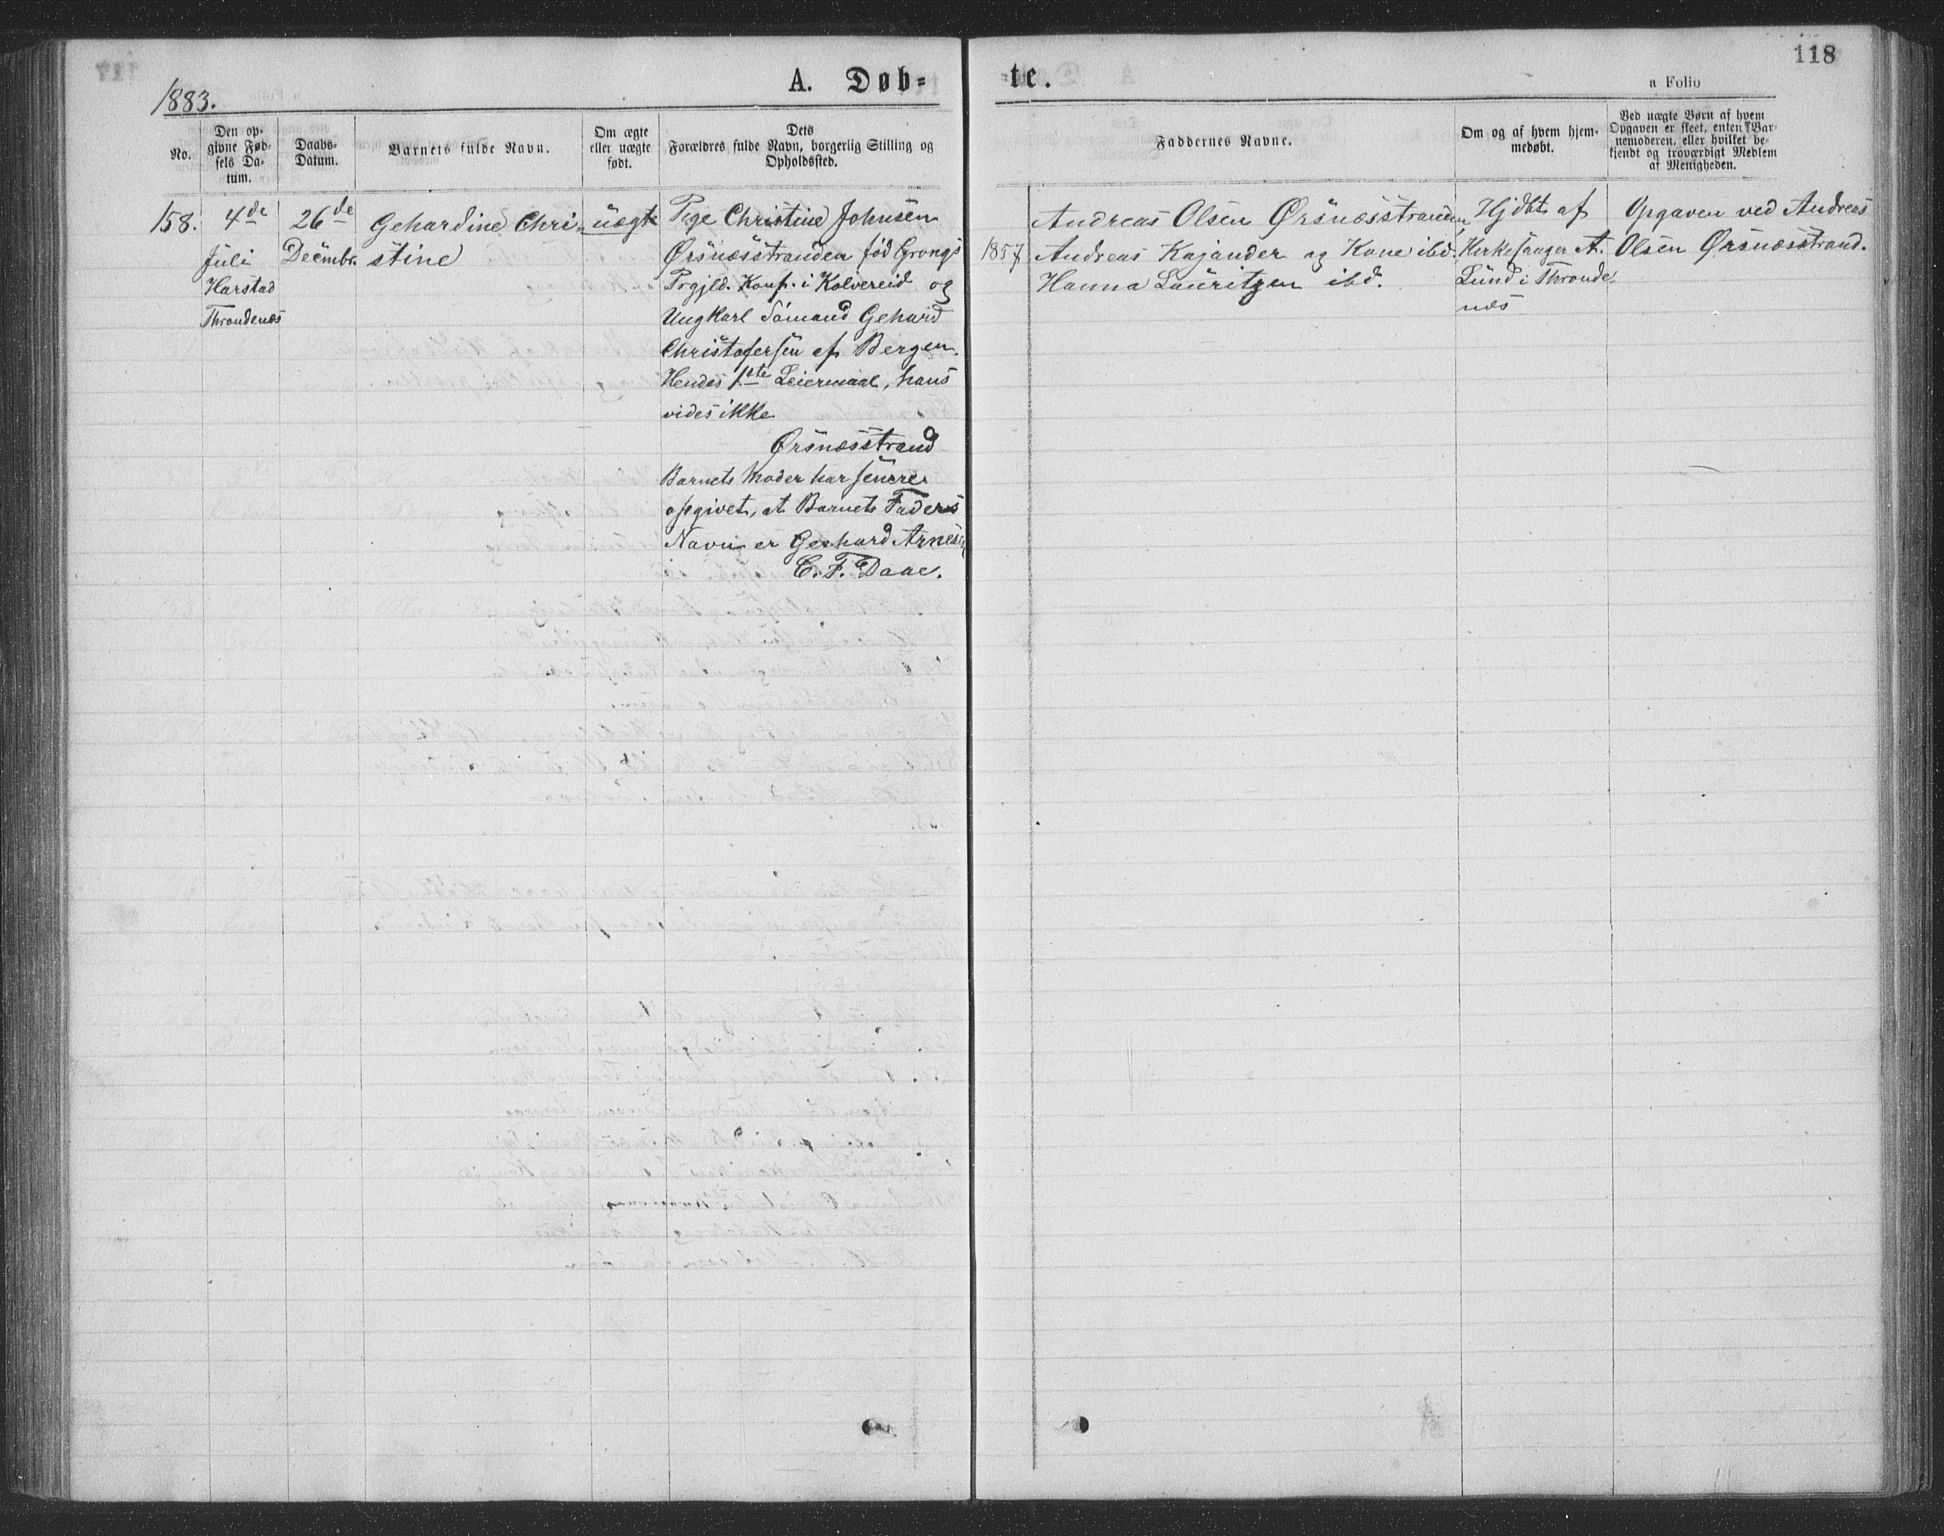 118
1883.
A. Døb=
te.
a Folio
No.
Den op-
givne Fød-
sels Da-
tum.
Daabs-
Datum.
Barnets fulde Navn.
Om ægte
eller uægte
født.
Dets
Forældres fulde Navn, borgerlig Stilling og
Opholdssted.
Faddernes Navne.
Om og af hvem hjem-
medøbt.
Ved uægte Børn af hvem
Opgaven er skeet, enten Bar-
nemoderen, eller hvilket be-
kjendt og troværdigt Medlem
af Menigheden.
158.
4de
Juli
Harstad
Throndenæs
26de
Decembr.
Gehardine Chri-
stine
uægte
Pige Christine Johnsen
Ørsnæsstranden fød Grongs
Prgjld. Konf. i Kolvereid og
Ungkarl Sömand Gehard
Christofersen af Bergen.
Hendes 1ste Leiermaal, hans
vides ikke
Ørsnæsstrand
Barnets Moder har senere
opgivet, at Barnets Faders
Navn er Gerhard Arnesen
C. F. Daae.
1857
Andreas Olsen Ørsnæsstranden,
Andreas Kajander og Kone ibd.
Hanna Lauritzen ibd.
Hjdbt af
Kirkesanger A.
Lund i Thronde-
næs
Opgaven ved Andreas
Olsen Ørsnæsstrand.